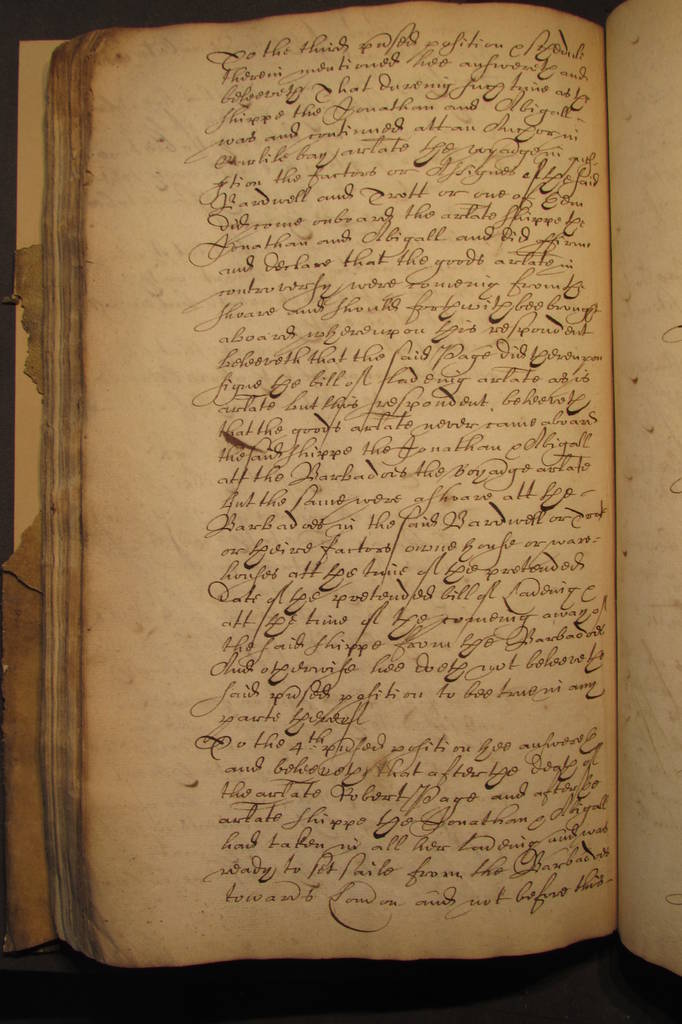 To the third p̱nsed position & schedule
therein mentioned hee answereth and
beleeveth That dureing such time as the
shippe the Jonathan and Abigall
was and continued att an Anchor in
Carlile bay arlate the voyadge in
q̱stion the factors or Assignes of the said
Bardwell and Trott or one of them
did come onboard the arlate shippe the
Jonathan and Abigall and did affirme
and declare that the goods arlate in
controversy were comeing from the
shoare and should forthwith bee brought
aboard whereupon this respondent
beleeveth that the said Page did thereupon
signe the bill of ladeing arlate as is
arlate but this respondent beleeveth
that the goods arlate never came aboard
the said shippe the Jonathan & Abigall
att the Barbados the voyadge arlate
but the same were ashoare att the
Barbados in the said Bardwell or Trott
or theire factors owne house or ware-
houses att the time of the pretended
date of the pretended bill of Ladeing &
att the time of the comeing away of
the said shippe from the Barbados
And otherwise hee doeth not beleeve the
said p̱nsed position to bee true in any
parte thereof
To the 4th p̱nsed position hee answereth
and beleeveth that after the death of
the arlate Robert Page and after the
arlate shippe the Jonathan & Abigall
had taken in all her ladeing and was
ready to set saile from the Barbados
towards London and not before this